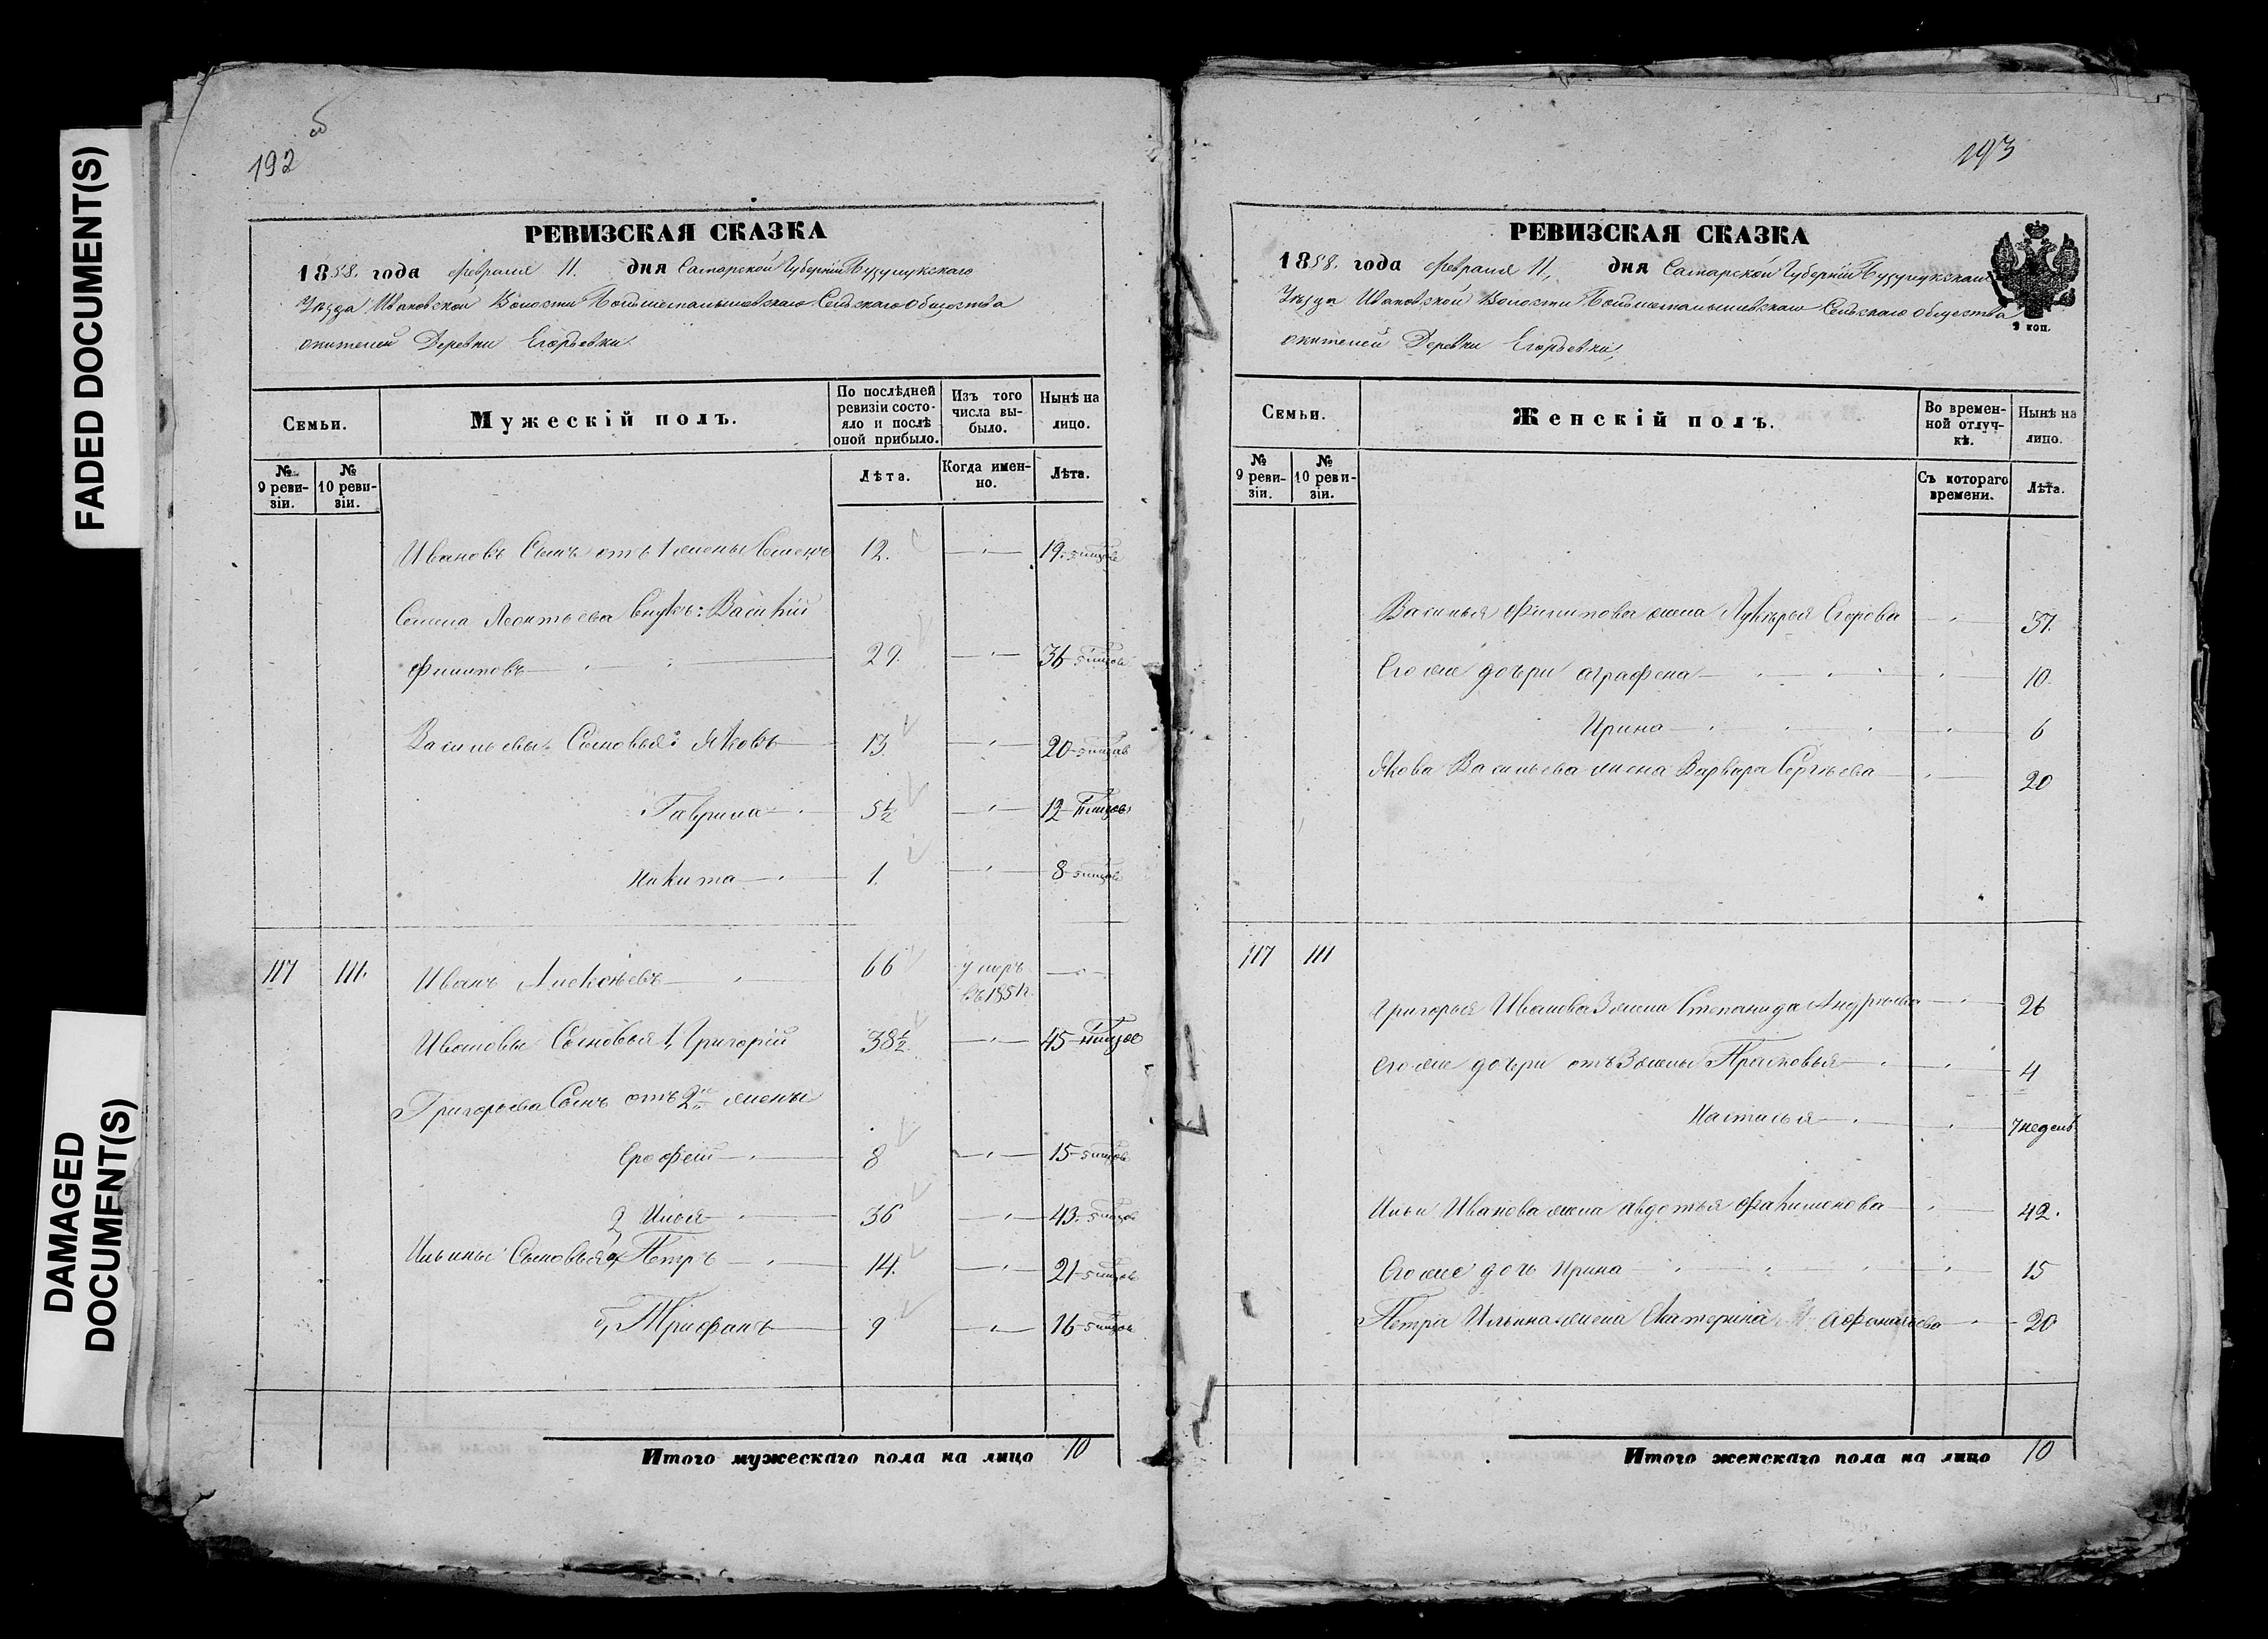 FADED DOCUMENT(S)
DAMAGED
DOCUMENT(S)
192
РЕВИЗСКАЯ СКАЗКА
1858. года февраля 11. дня Самарской Губерніи Бузулукскаго
Уѣзда Ивановской Волости Сельскаго Общества
жителей Деревни Егорьевки.
Семьи.
Мужескій полъ.
По послѣдней
ревизіи состо-
яло и послѣ
оной прибыло.
Изъ того
числа вы-
было.
Нынѣ на
лицо.
№
9 реви-
зіи.
№
10 реви-
зіи.
Лѣта.
Когда имен-
но.
Лѣта.
Ивановъ Сынъ отъ 1 жены 12. 19.
Семена Леонтьева внукъ: Василій
Филиповъ 29. 36
Васильевы Сыновья: Яковъ 13 20
Гаврила 5½ 12
Никита 1. 8
117 111. Иванъ Алексѣевъ 66 умеръ
въ 1851 г.
Ивановы Сыновья 1, Григорій 38½ 45
Григорьева Сынъ отъ 2й жены
Ерофей 8 15
2 Илья 36 43
Ильины Сыновья а, Петръ 14. 21
б, Трифанъ 9 16
Итого мужескаго пола на лицо 10
193
РЕВИЗСКАЯ СКАЗКА
1858. года февраля 11, дня Самарской Губерніи Бузулукскаго
Уѣзда Ивановской Волости Сельскаго Общества
жителей Деревни Егорьевки,
2 коп.
Семьи.
Женскій полъ.
Во времен-
ной отлуч-
кѣ.
Нынѣ на
лицо.
№
9 реви-
зіи.
№
10 реви-
зіи.
Съ котораго
времени.
Лѣта.
Василья Филипова жена Лукерья Егорова 37.
Его же дочери Аграфена 10.
Ирина 6
Якова Васильева жена Варвара Сергѣева 20
117 111
Григорья Иванова 3 жена Степанида Андрѣева 26
Его же дочери отъ 3 жены Прасковья 4
Настасья 7 недель
Ильи Иванова жена Авдотья 42.
Его же дочь Ирина 15
Петра Ильина жена Екатерина Афонасьева 20
Итого женскаго пола на лицо 10